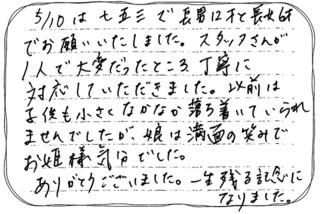 5/10は七五三で長男は才と長女6才
でお願いいたしました。スタッフさんが
1人で大変だったところ丁寧に
対応していただきました。以前は
子供も小さくなかなか落ち着いていられ
ませんでしたが、娘は満面の笑みで
お姫様気分でした。
ありがとうございました。一生残る記念に
なりました。